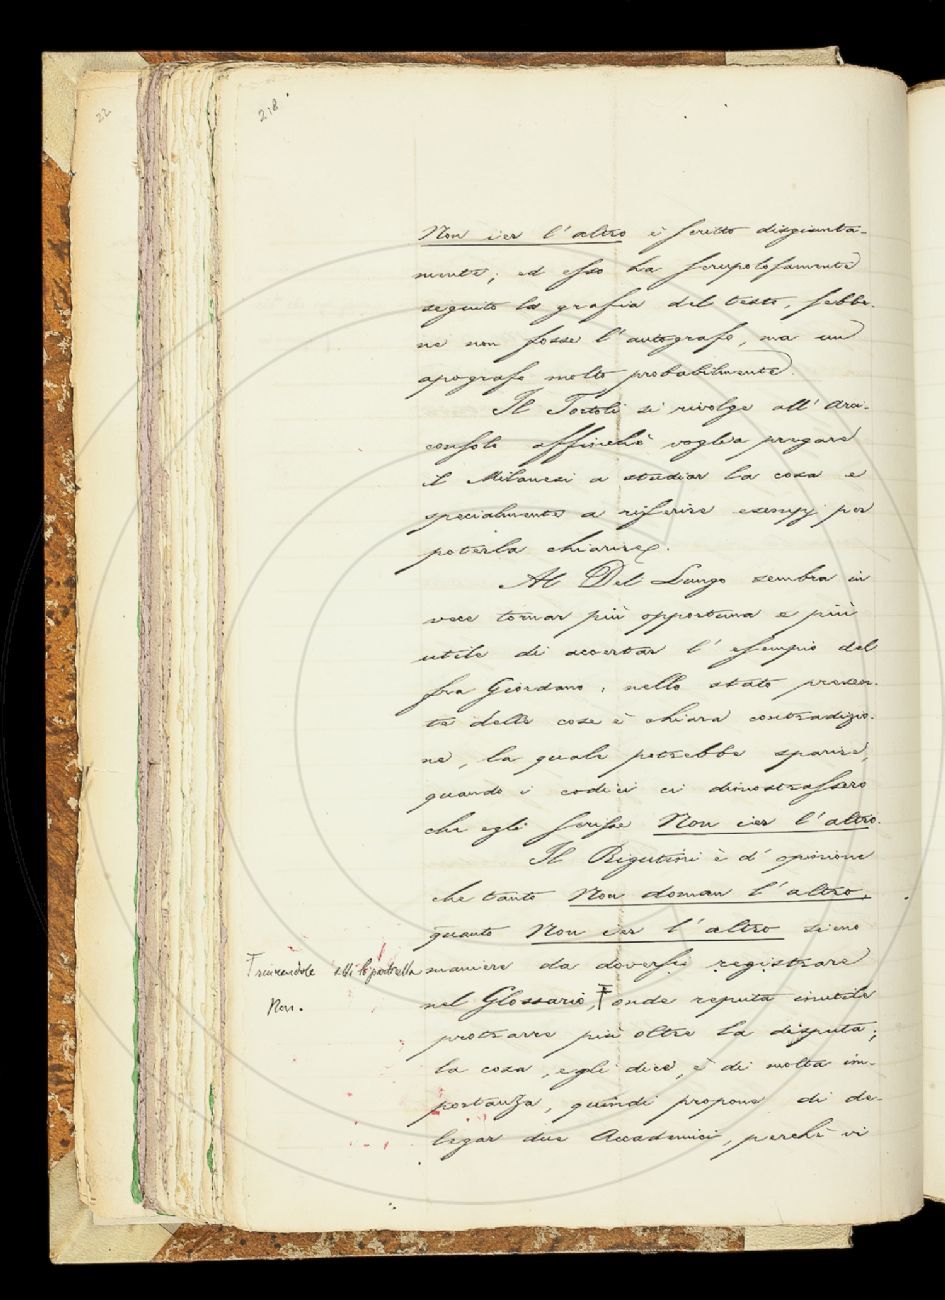 22
218
Non ier l'altro è scritto disgiunta-
mente; ed esso ha scrupolosamente
seguito la grafia del testo, sebbe-
ne non fosse l'autografo, ma un
apografo molto probabilmente.
Il Tortoli si rivolge all'Arci-
consolo affinchè voglia pregare
il Milanesi a studiar la cosa e
specialmente a riferire esempj per
poterla chiarire.
Al Del Lungo sembra in
vece tornar più opportuna e più
utile di accertar l'esempio del
fra Giordano; nello stato presen-
te delle cose è chiara contradizio-
ne, la quale potrebbe sparire,
quando i codici ci dimostrassero
che egli scrisse Non ier l'altro.
Il Rigutini è d'opinione
che tanto Non doman l'altro,
quanto Non ier l'altro sieno
maniere da doversi registrare
nel Glossario, onde reputa inutile
protrarre più oltre la disputa;
la cosa, egli dice, è di molta im-
portanza, quindi propone di de-
legar due Accademici, perchè vi
sotto la particella
Non.